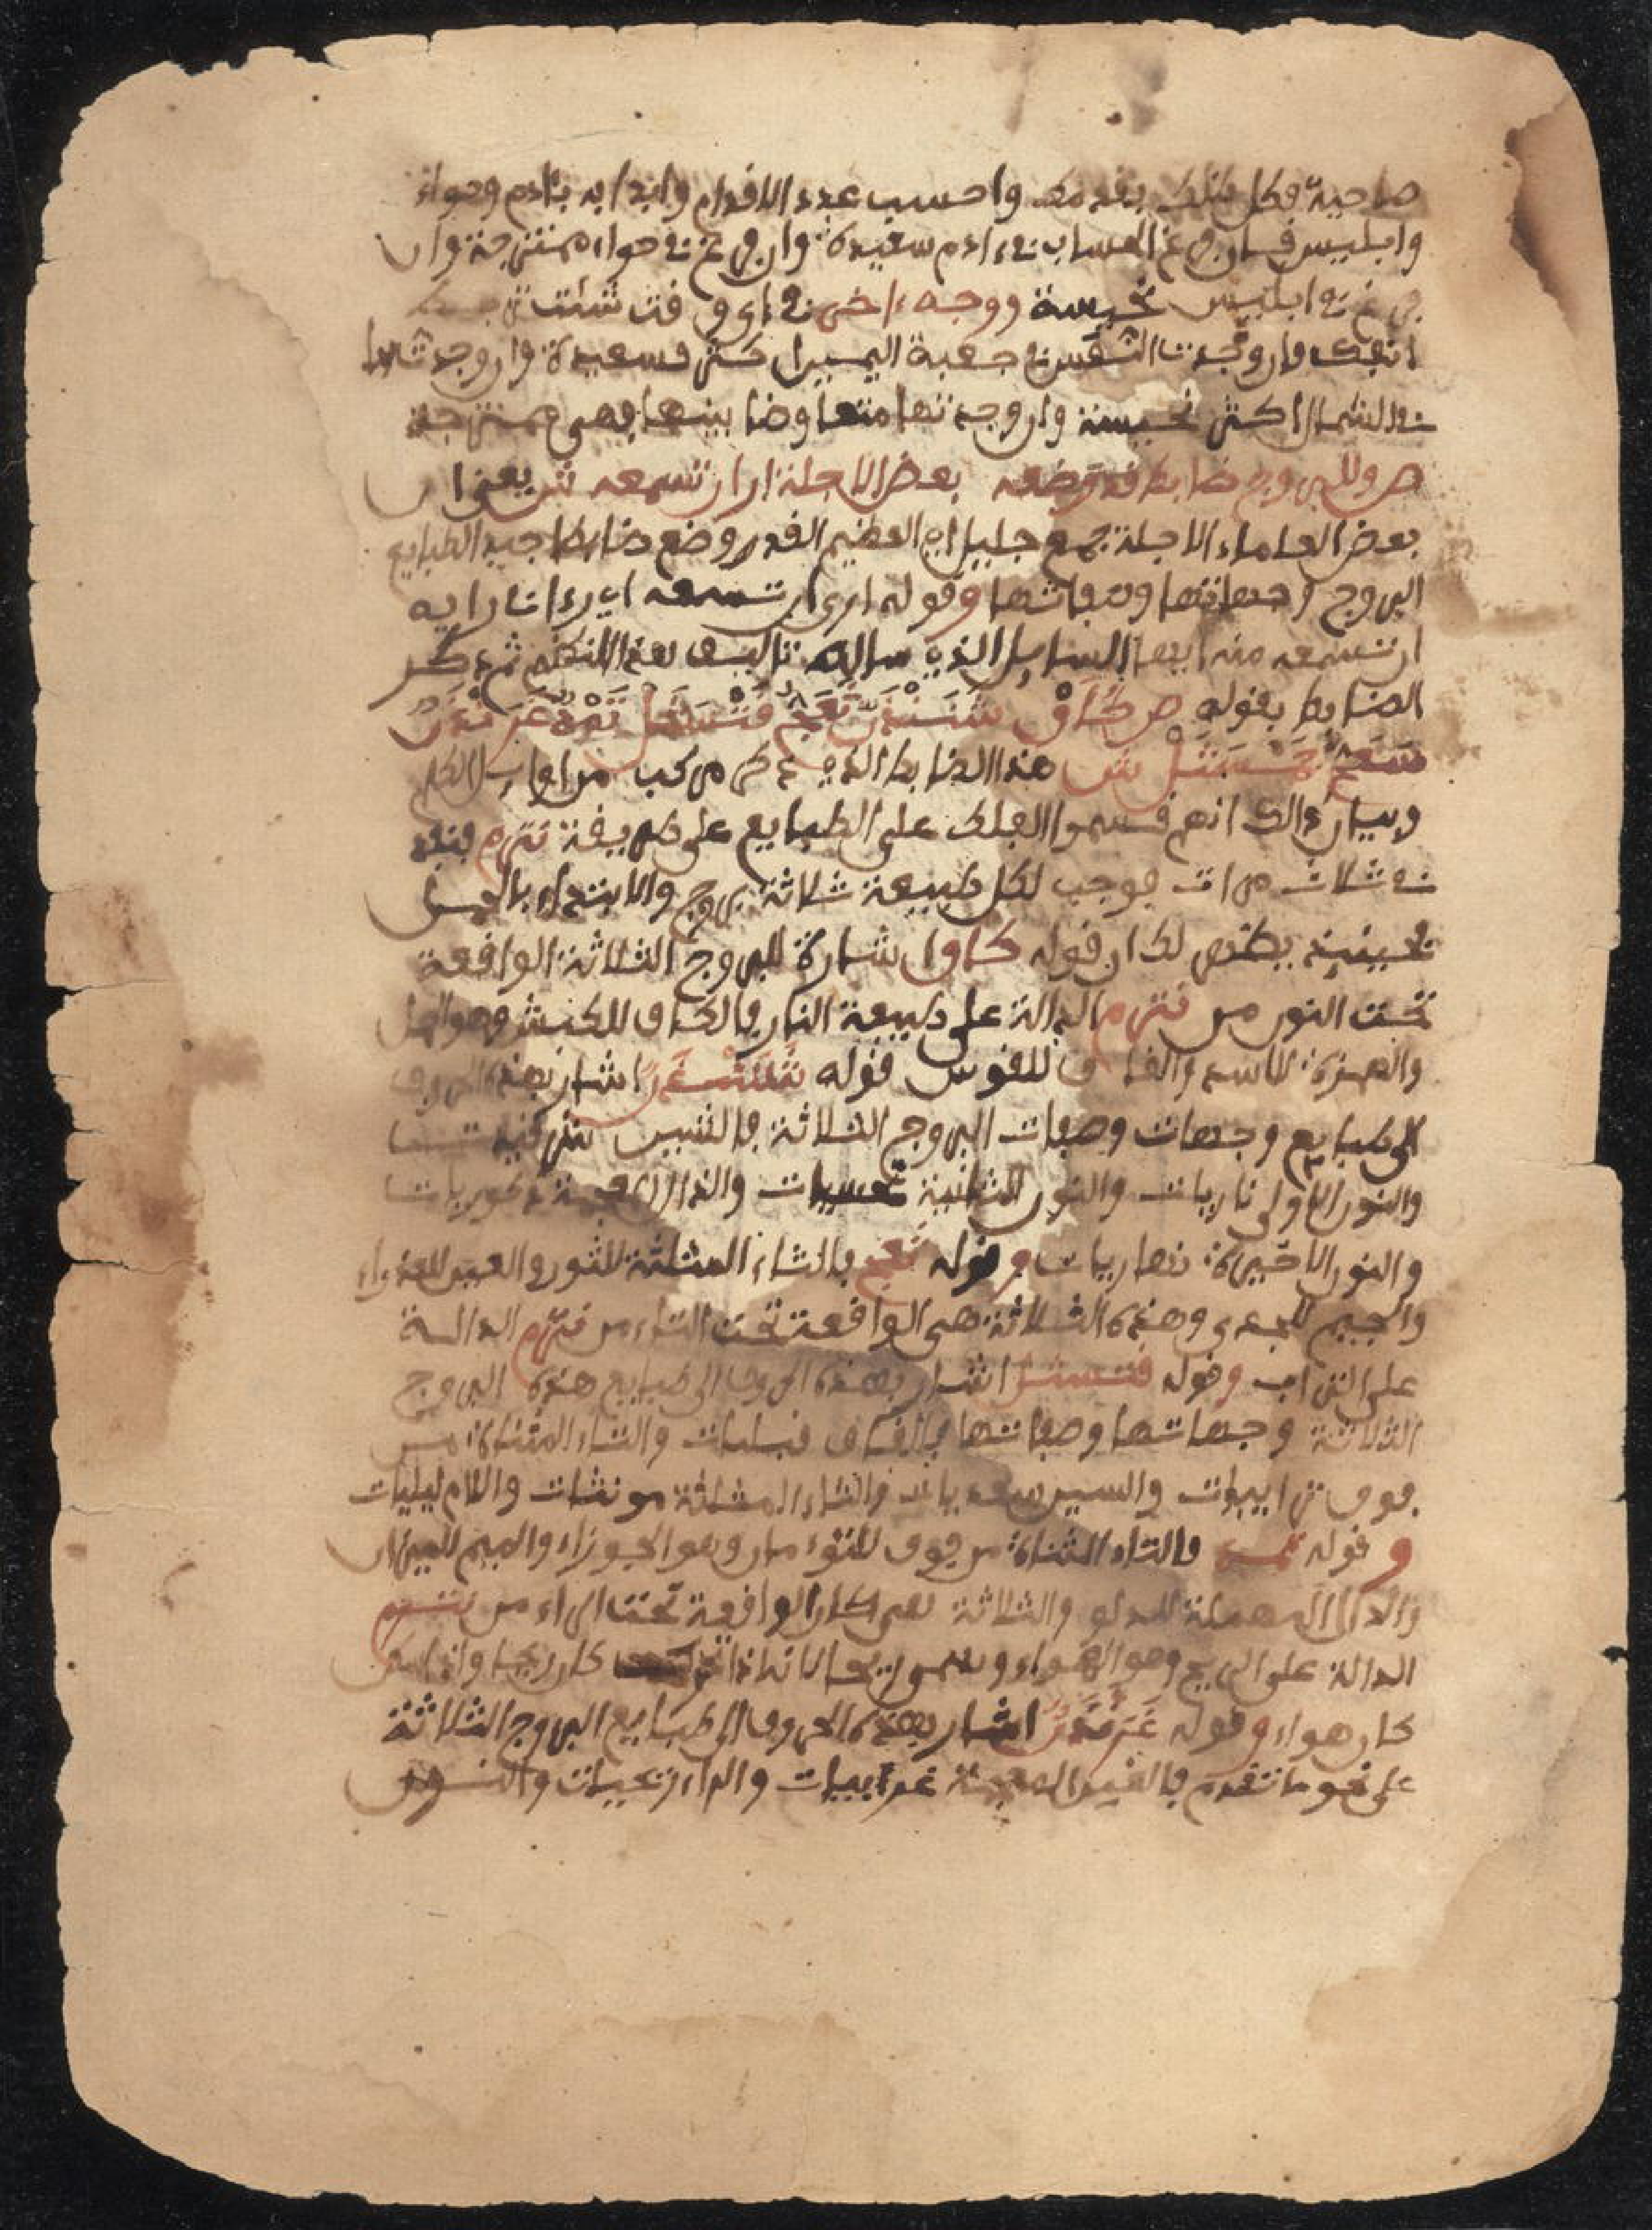 ضاحية فكل ظلك بقدمك واحسب عدد الاقدام وابدا به بئادم وحواء
وابليس فان فرغ الحساب في ءادم سعيدة وان فرغ في حواء ممتزجة وان
فرغ في ابليس نحيسة ووجه ءاخر في اي وقت شئت
انفك وان وجدت النفس في جعبة اليمين اكثر فسعيدة وان وجدتها
في الشمال اكثر نحيسة وان وجدتها متعاوضا بينهما فهي ممتزجة
ص وللبروج ضابط قد وضعه بعض الاجلة ارا ان تسمعه ش يعني ان
بعض العلماء الاجلة جمع جليل اي العظيم القدر وضع ضابطا جيد الطبايع
البروج وجهاتها وصفاتها وقوله ارى ان تسمعه اي رءانا رايه
ان تسمعه منه ايها السايل الذي سالته تاليف هذا النظم ثم ذكر
الضابط بقوله ص كاق
ش هذا الضابط الذي ذكر مركب من اوايل الكلم
وبيان ذالك انهم قسموا الفلك على الطبايع على طريقة نترم
في ثلاث مرات فوجب لكل طبيعة ثلاثة بروج والابتداء بالحمل
فحينيذ يظهر لك ان قوله كاق اشارة للبروج الثلاثة الواقعة
تحت النون من نترم الدالة على طبيعة النار فالكاف للكبش وهو الحمل
والهمزة للاسد والقاف للقوس قوله اشار بهذه الحروف
الى طبايع وجهات وصفات البروج الثلاثة فالشين شرقيات
والنون الاولى ناريات والنون الثانية نحسيات والذال المعجمة ذكوريات
والنون الاخيرة نهاريات وقوله ثعج بالثاء المثلثة للثور والعين للعذراء
والجيم للجدي وهذه الثلاثة هي الواقعة تحت التاء من نترم الدالة
على التراب وقوله اشار بهذه الحروف الى طبايع هذه البروج
الثلاثة وجهاتها وصفاتها فالقاف قبليات والتاء المثناة من
فوق ترابيات والسين سعديات والثاء المثلثة مونثات واللام ليليات
وقوله تمد فالتاء المثناة من فوق للتوءمان وهو الجوزاء والميم للميزان
والدال المهملة للدلو والثلاثة هي كذا الواقعة تحت الراء من نترم
الدالة على الريح وهو الهواء ويسمى ريحا لانه اذا تحرك كان ريحا واذا سكن
كان هواء وقوله اشار بهذه الحروف الى طبايع البروج الثلاثة
على نحو ما تقدم فالغين المعجمة غرابيات والراء ريحيات والنون